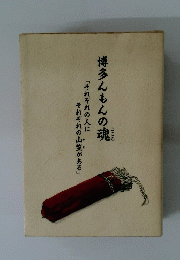 博多んもんの魂
「それぞれの人に
それぞれの山笠がある」